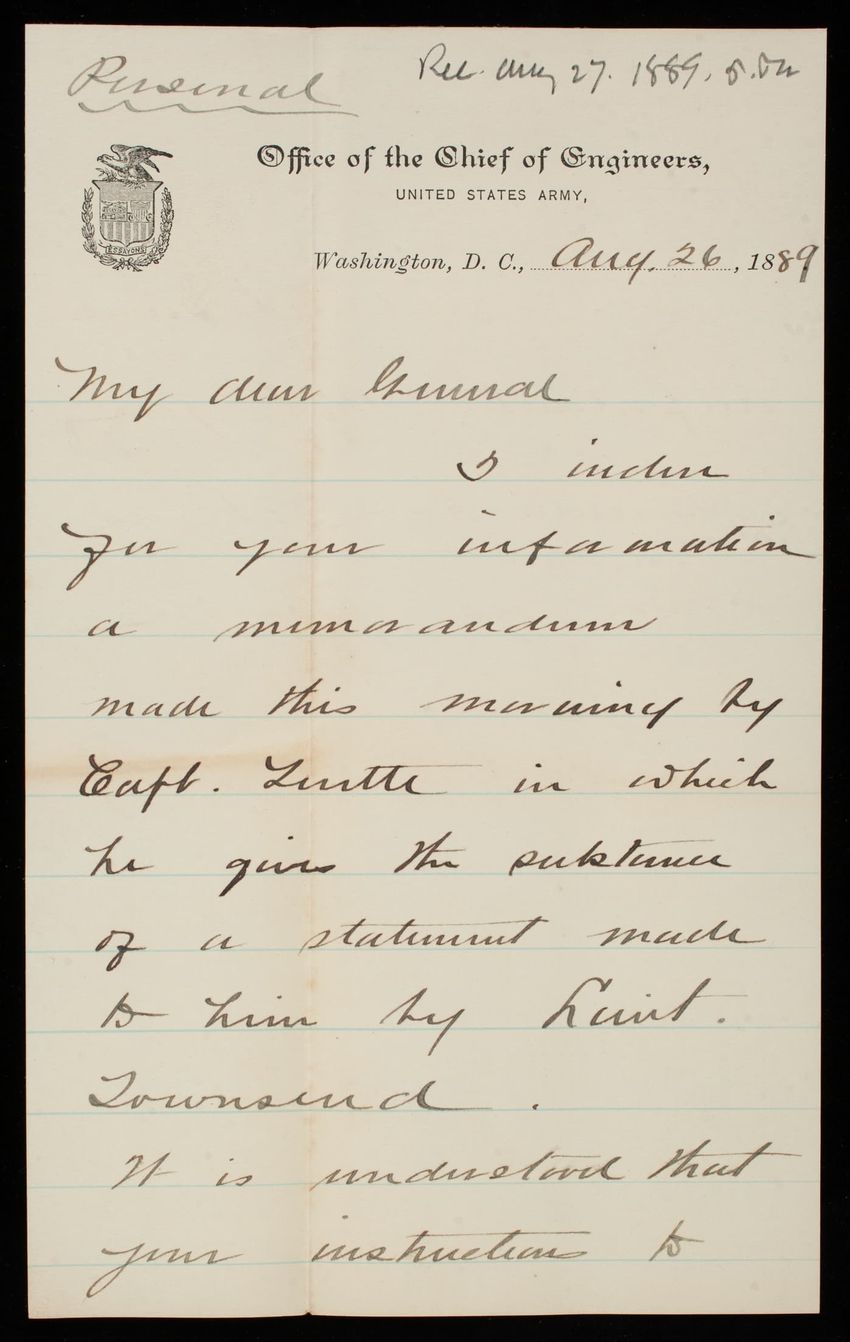 Personal
Rec. Aug 27. 1889.
Office of the Chief of Engineers,
UNITED STATES ARMY,
ESSAYONS
Washington, D. C., Aug. 26, 1889
My dear General
I inclose
for your information
a memorandum
made this morning by
Capt. in which
he gives the substance
of a statement made
to him by Lieut.
Townsend.
It is understood that
your instructions to